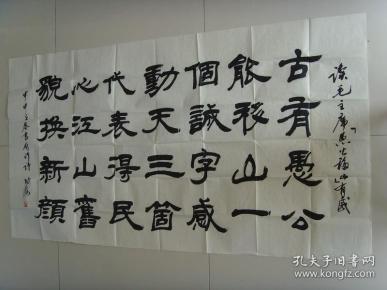 读毛主席愚公移山有感
古有愚公
能移山一
個誠字感
動天三箇
代表得民
心江山舊
貌換新顏
甲申之春
孔夫子旧书网
www.kongfz.com